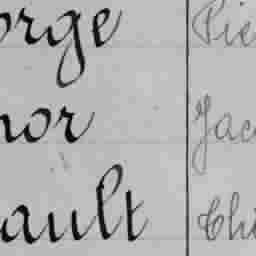 orge Pie
nor Jac
ault Thi